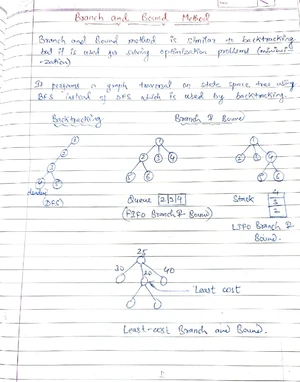 Branch and Bound Method
Branch and Bound method is similar to backtracking
but it is used for solving optimization problems (minimi
-zation)
It performs a graph traversal on state space tree using
BFS instead of DFS which is used by backtracking.
Backtracking
Branch & Bound
1
2
3
1
2 3 4
5 6
1
2 3 4
5 6
(DFS)
Queue 2 3 4
(FIFO Branch & Bound)
Stack
LIFO Branch &
Bound.
25
30 20 40
Least cost
Least-cost Branch and Bound.